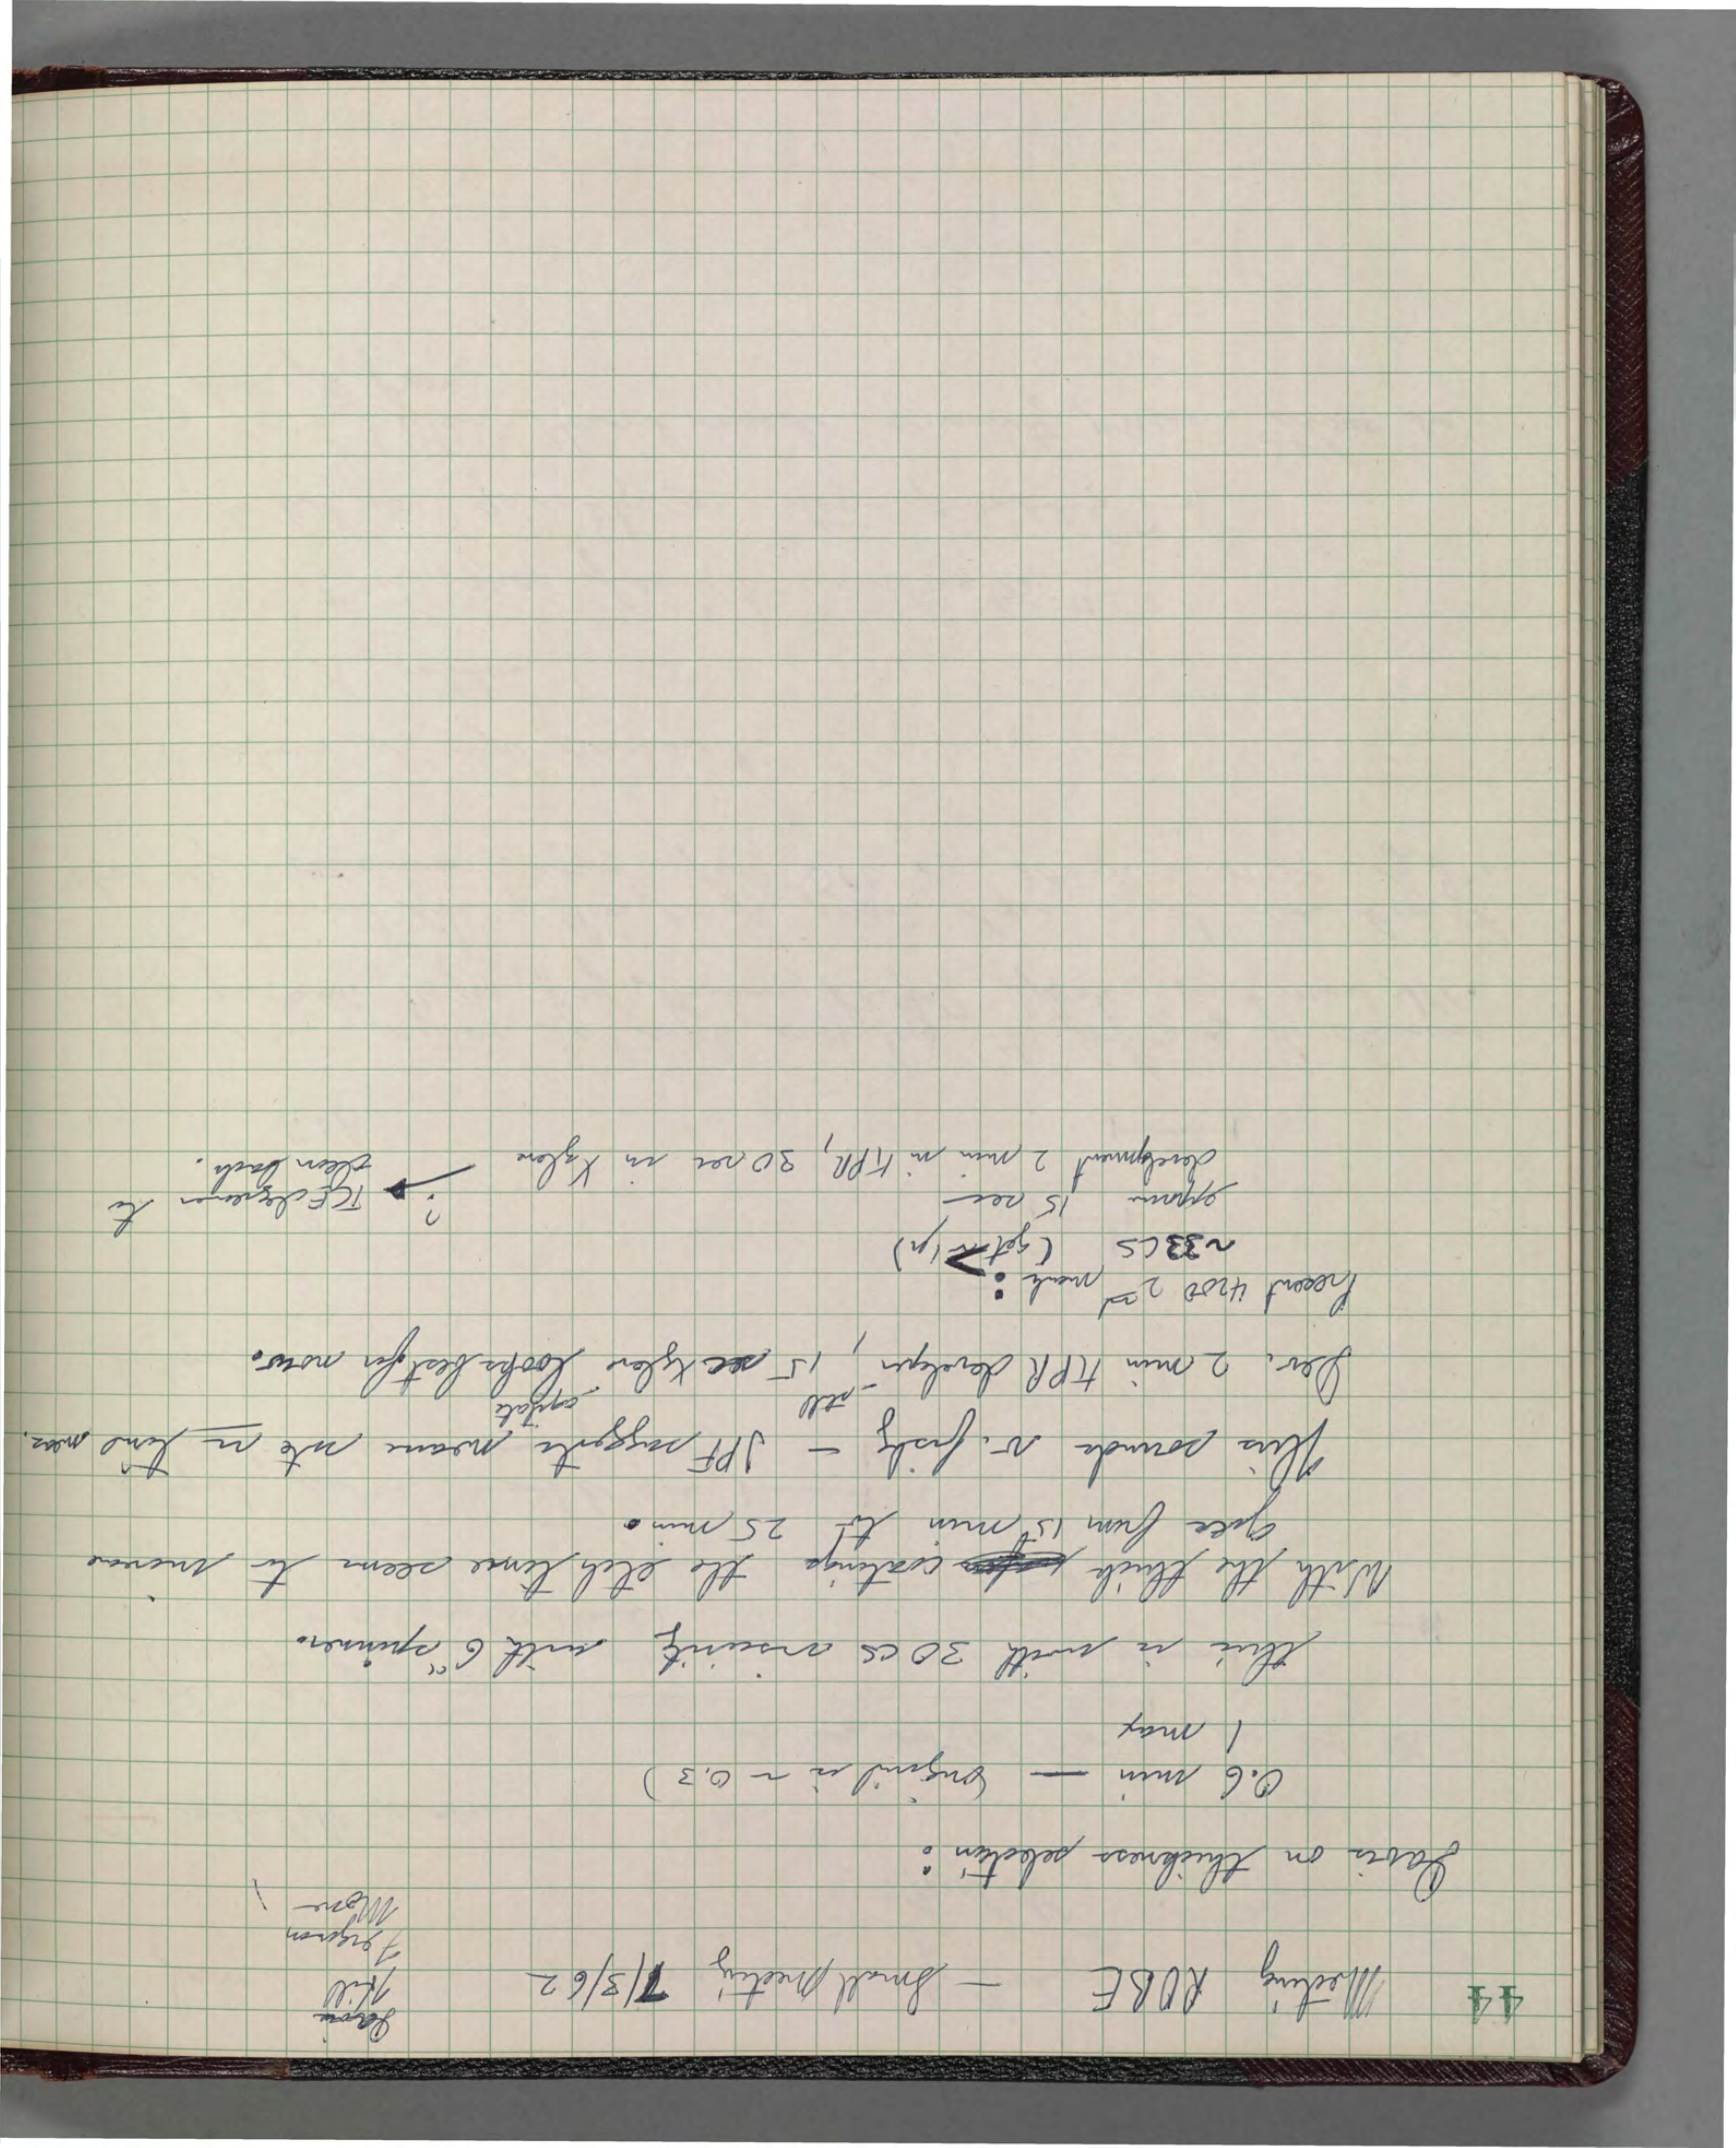 44
Meeting KDBE — Small Meeting 7/3/62
Hill
Ferguson
Moore
on thickness selection:
0.6 min — (original is ~ 0.3)
1 max
this is with 30 cs viscosity with 6" spinner.
With the thick coatings the etch time seems to increase
from 15 min to 25 min.
This sounds v. fishy — JPF suggests means rate vs time meas.
- still agitate
Dev. 2 min KPR developer, 15 sec Xylene looks best for now.
Present 4200 2nd mask:
~33 CS (get)
15 sec
development 2 min in KPR, 30 sec in Xylene → ? TCE degreaser to
clean back.